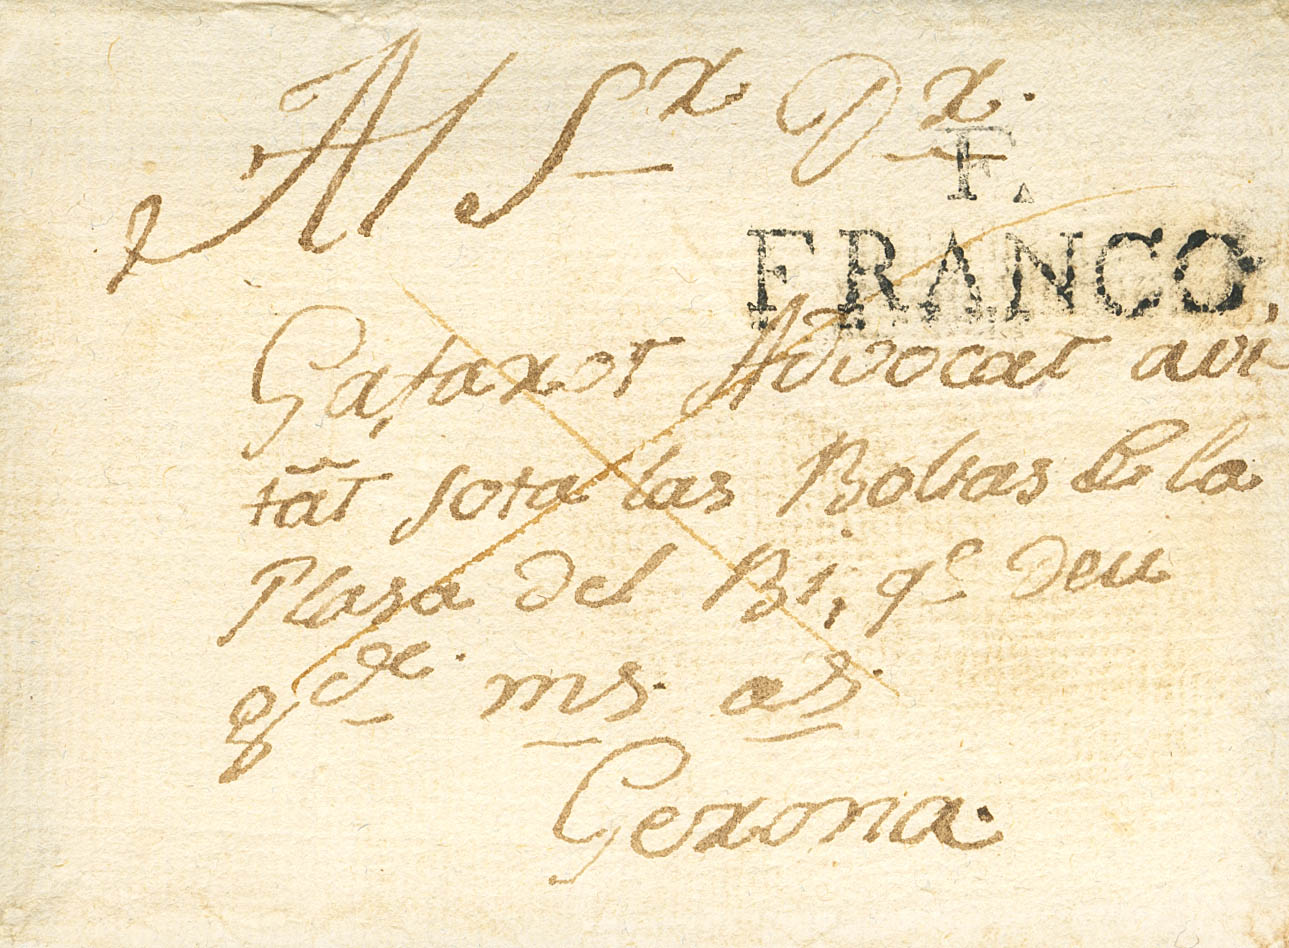 Al Sr Dr.
F.
FRANCO
Gafarot Advocat avi-
tãt sota las Bolsas de la
Plasa del Bi, qe deu
gde. ms. as.
Gerona.